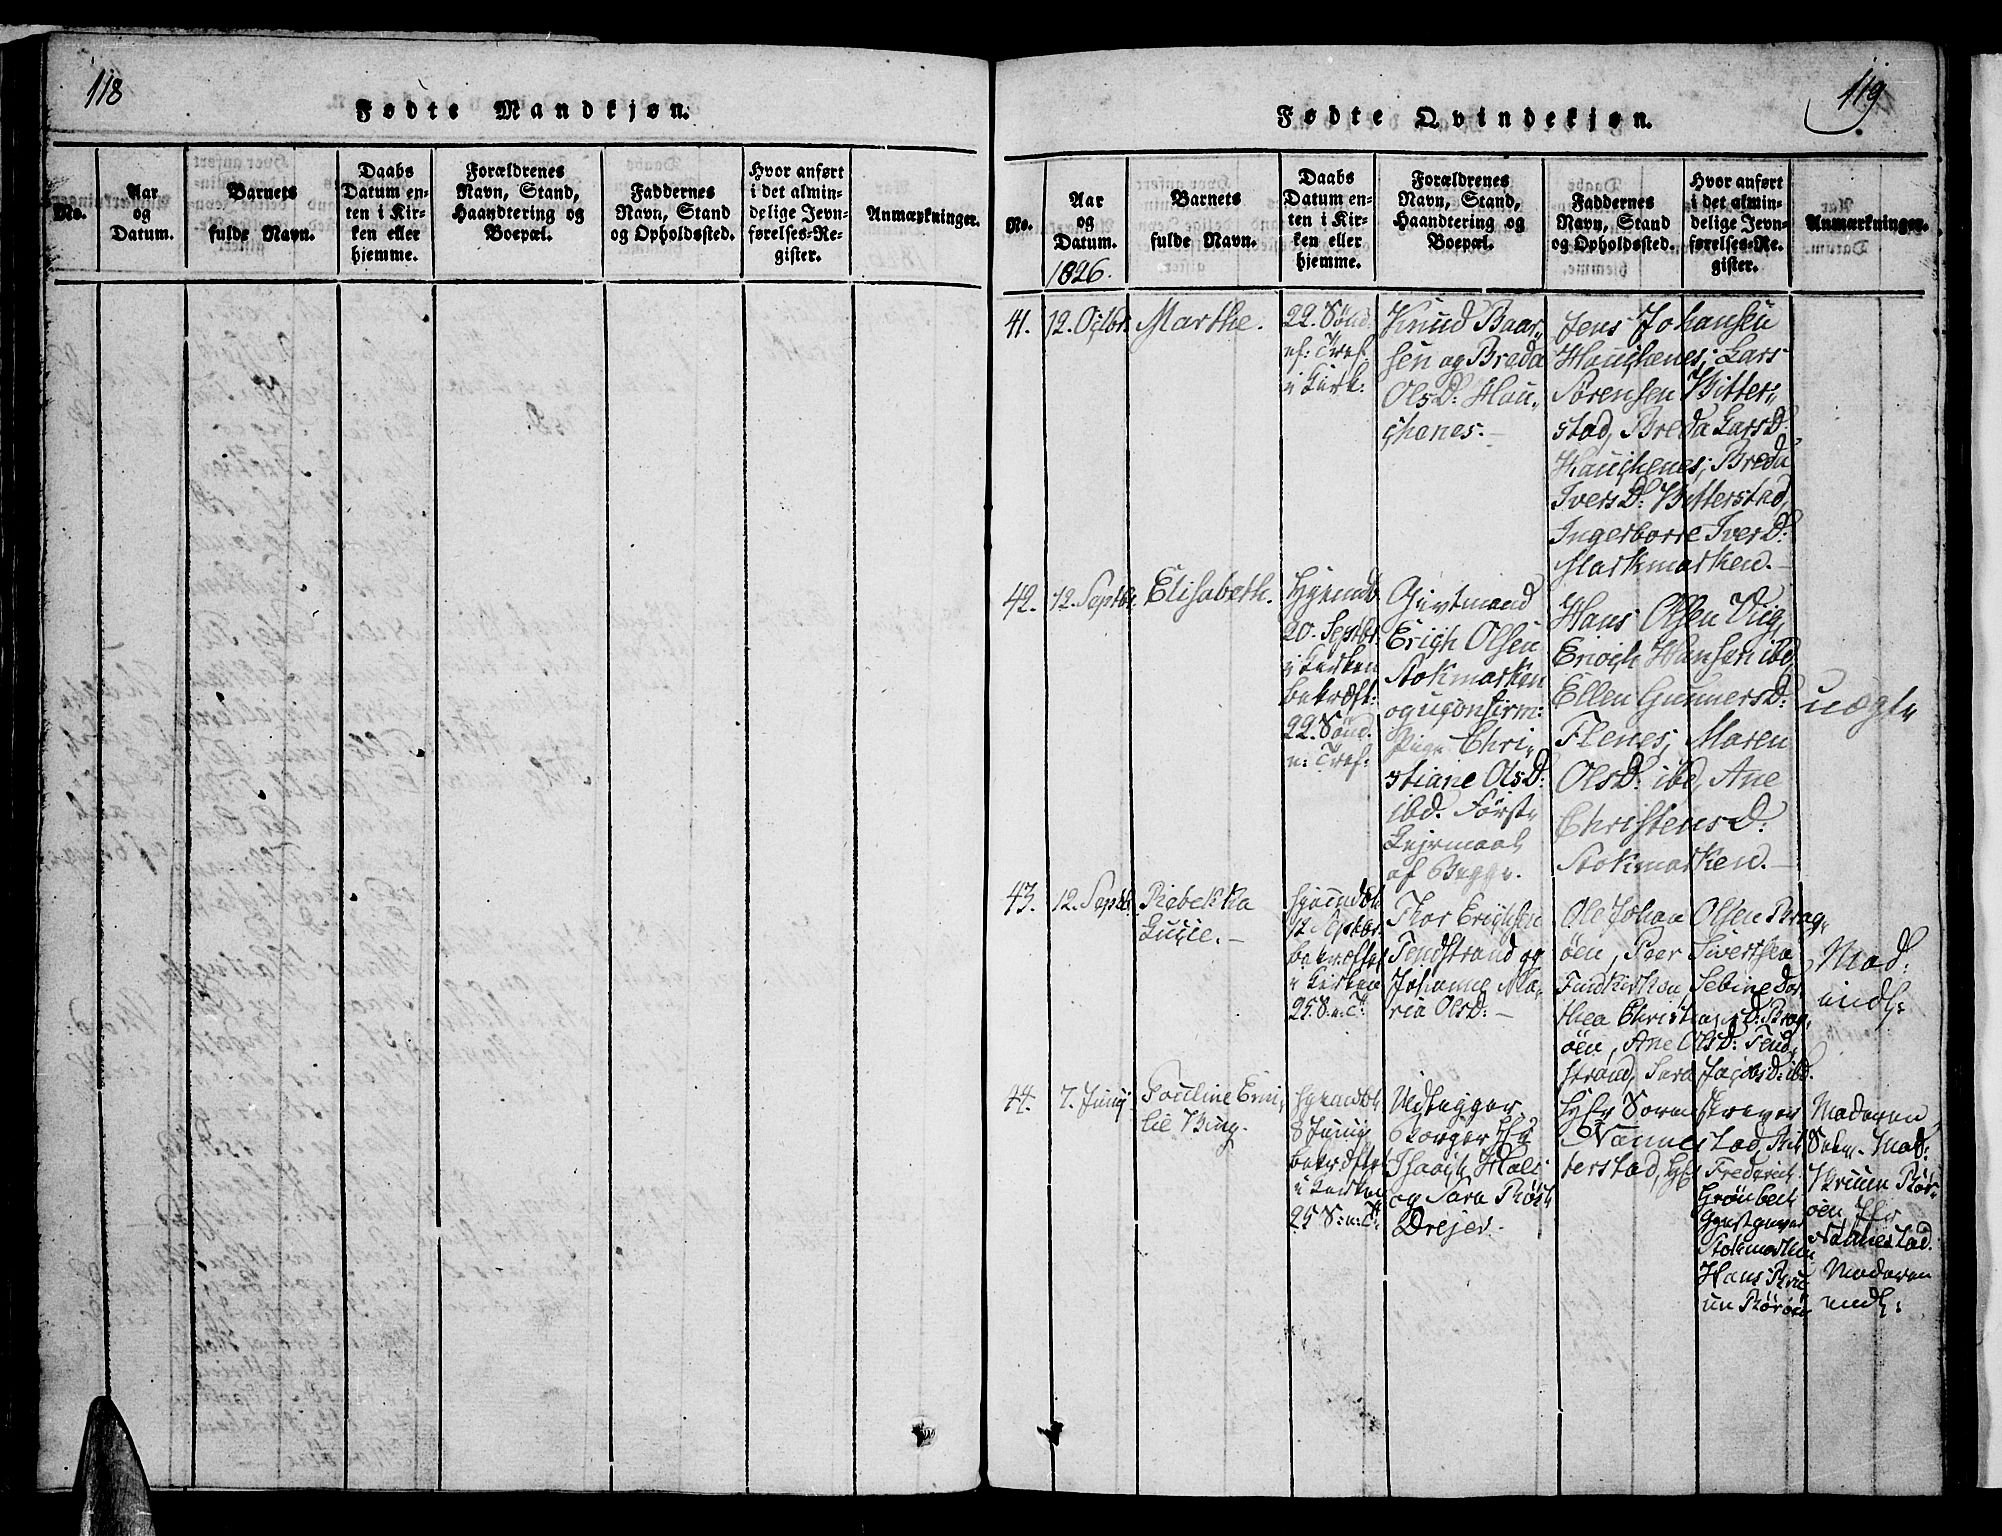 118
Fødte Mandkjøn.
No.
Aar
og
Datum.
Barnets
fulde Navn.
Daabs
Datum en-
ten i Kir-
ken eller
hjemme.
Forældrenes
Navn, Stand,
Haandtering og
Boepæl.
Faddernes
Navn, Stand
og Opholdssted.
Hvor anført
i det almin-
delige Jevn-
førelses-Re-
gister.
Anmærkninger.
119
Fødte Qvindekjøn.
No.
Aar
og
Datum.
1826.
Barnets
fulde Navn.
Daabs
Datum en-
ten i Kir-
ken eller
hjemme.
Forældrenes
Navn, Stand,
Haandtering og
Boepæl.
Faddernes
Navn, Stand
og Opholdssted.
Hvor anført
i det almin-
delige Jevn-
førelses-Re-
gister.
Anmærkninger.
41.
12. Octbr.
Marthe.
22. Sønd.
ef: Tref.
i Kirk:
Knud Baar-
sen og Breda
OlsD: Hau-
chenes.
Jens Johansen
Hauchenes, Lars
Sørensen Bitter-
stad, Breda LarsD:
Hauchenes, Breda
IversD: Bitterstad,
Ingerborre IverD:
Markmarken.
42.
12. Septbr.
Elisabeth.
Hjemdb.
20. Septbr.
i Kirken
bekræft:
22. Sønd.
e: Tref:
Givtmand
Erich Olsen
Stokmarken
og uconfirm:
Pige Chri-
stiane OlsD:
ibd. Første
Lejrmaal
af Begge.
Hans Olsen Viig,
Enoch Hansen ibd,
Ellen GunnersD:
Flenes, Maren
OlsD: ibd, Ane
ChristensD:
Stokmarken.
uægte
43.
12. Septb.
Rebekka
Lucie.
Hjemdb.
12. Septbr.
bekræftet
i Kirken
25 S. e. T:
Thor Erichsen
Tendstrand og
Johanne Ma-
ria OlsD:
Ole Johan Olsen Brag-
øen, Peer Sivertsen
Sebine Dor
thea D: Brag-
øen, Ane OlsD: Tend
strand, Sara JacobsD: ibd.
Mad:
indl:
44.
7. Junij
Pouline Emi-
lie Bing.
Hjemdb.
8 Junij
bekræftet
i Kirken
25 S: e: T:
Borger Hr
Isaach Falc
og Sara Røst
Drejer.
Hr Soren
Nannestad, Bit
terstad, Hr Frederich
Grønbech
Gjestgiver
Stokmarken
Hans Bru
un Rørøen
Madamen
Mad:
Bruun Rør-
øen
Nannestad.
Madamen
indl: